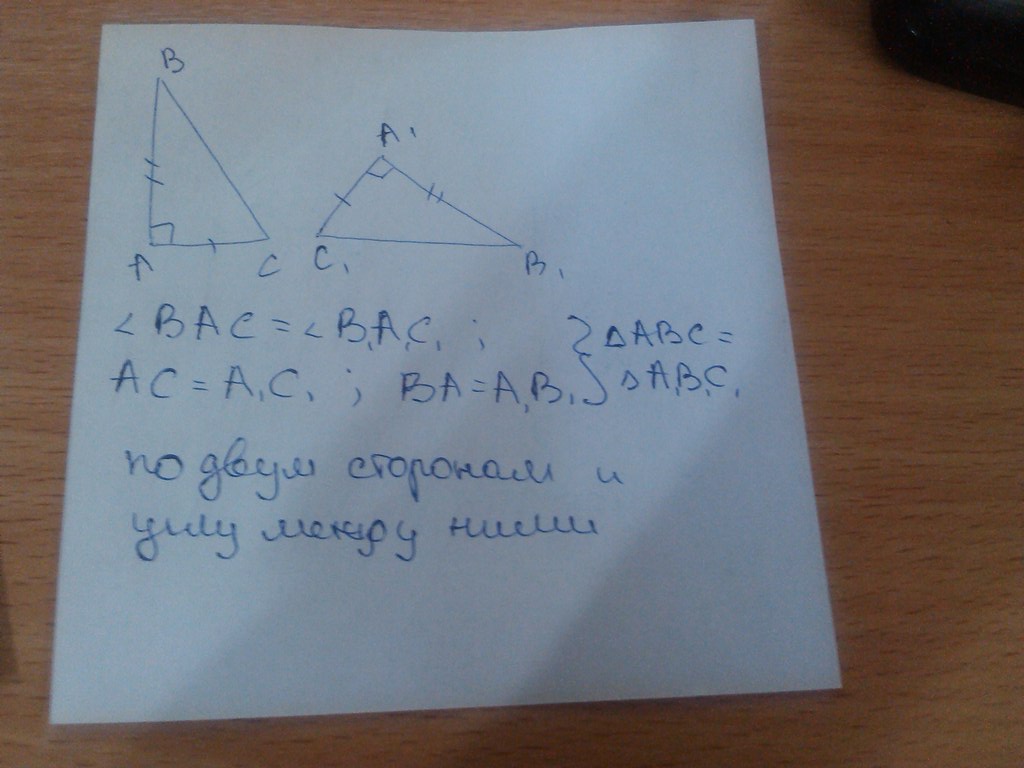 B
A₁
A C C₁ B₁
∠BAC = ∠B₁A₁C₁ ; } ΔABC =
AC = A₁C₁ ; BA = A₁B₁ } ΔA₁B₁C₁
по двум сторонам и
углу между ними